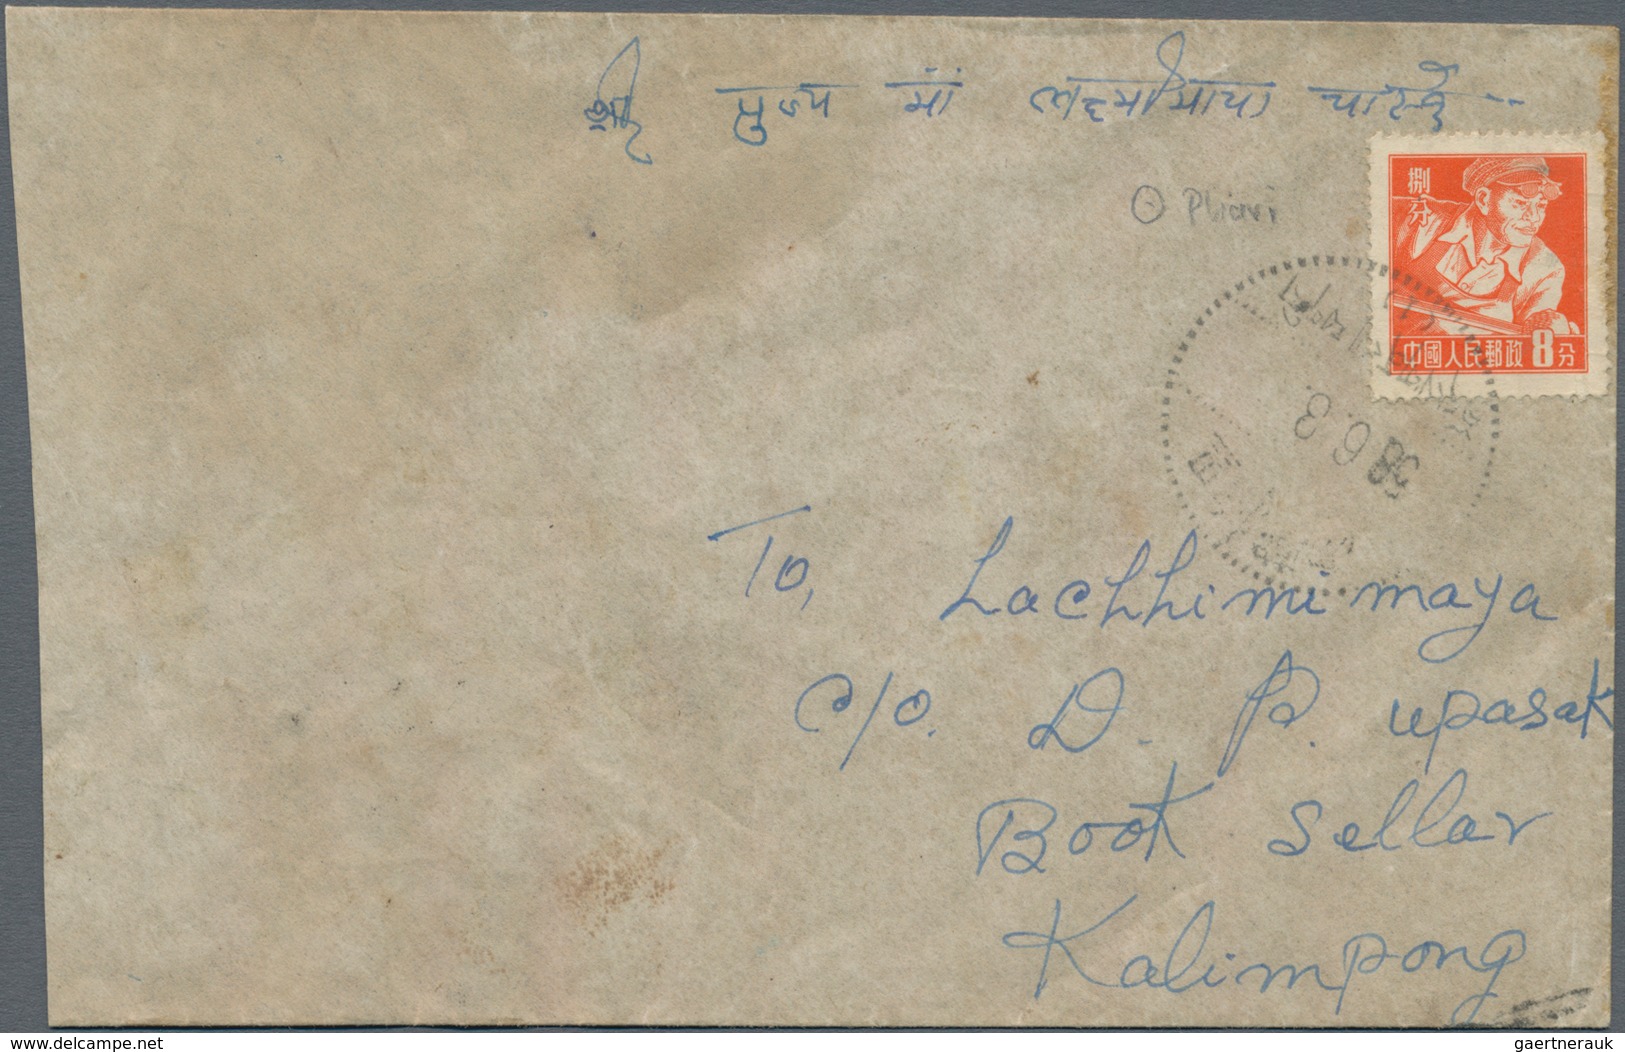 श्री पुज्य मां लक्ष्मीमाया
Pharí
捌分
中國人民郵政 8分
58.6.3
To, Lachhimi maya
c/o. D. P. upasak
Book Sellar
Kalimpong
www.delcampe.net
gaertnerauk